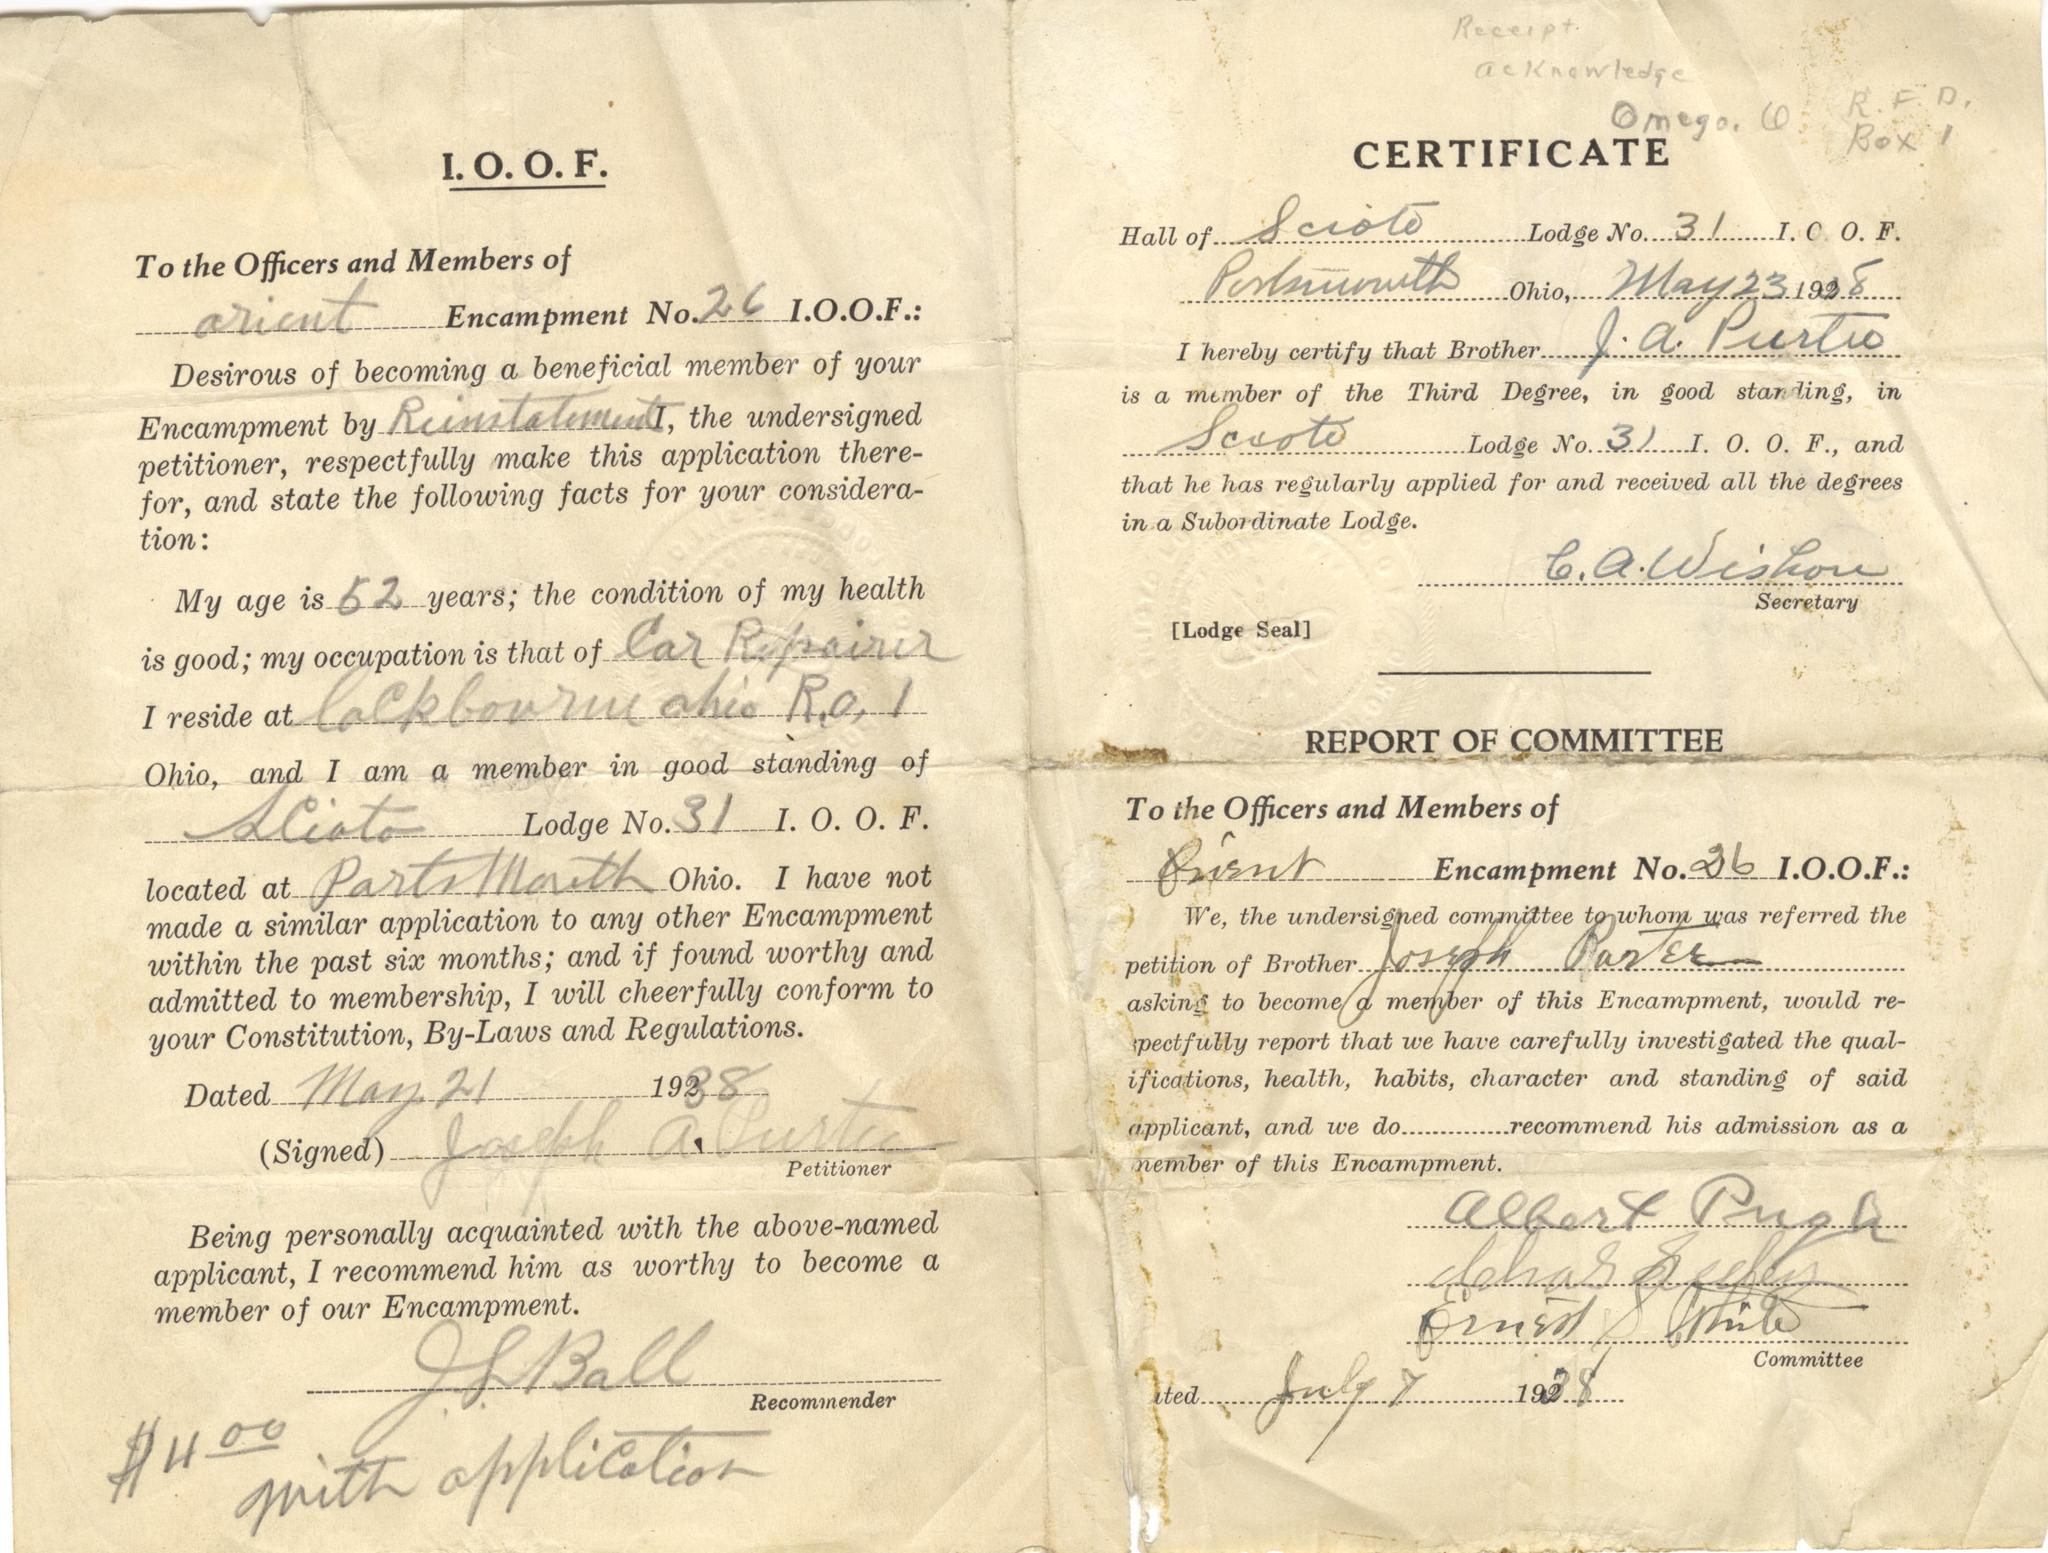 I.O.O.F.
To the Officers and Members of
orient Encampment No. 26 I.O.O.F.:
Desirous of becoming a beneficial member of your
Encampment by Reinstatement I, the undersigned
petitioner, respectfully make this application there-
for, and state the following facts for your considera-
tion:
My age is 52 years; the condition of my health
is good; my occupation is that of Car Repairer
I reside at Lockbourne ohio R.O. 1
Ohio, and I am a member in good standing of
Scioto Lodge No. 31 I. O. O. F.
located at PortsMouth Ohio. I have not
made a similar application to any other Encampment
within the past six months; and if found worthy and
admitted to membership, I will cheerfully conform to
your Constitution, By-Laws and Regulations.
Dated May 21 1938
(Signed) Joseph A. Purtee
Petitioner
Being personally acquainted with the above-named
applicant, I recommend him as worthy to become a
member of our Encampment.
J L Ball
Recommender
$4 00
with application
Receipt
acknowledge
Omego. O R.F.D.
Box 1
CERTIFICATE
Hall of Scioto Lodge No. 31 I. O. O. F.
Portsmouth Ohio, May 23 1938
I hereby certify that Brother J. A. Purtee
is a member of the Third Degree, in good standing, in
Scioto Lodge No. 31 I. O. O. F., and
that he has regularly applied for and received all the degrees
in a Subordinate Lodge.
C. A. Wishon
Secretary
[Lodge Seal]
REPORT OF COMMITTEE
To the Officers and Members of
Orient Encampment No. 26 I.O.O.F.:
We, the undersigned committee to whom was referred the
petition of Brother Joseph Purtee
asking to become a member of this Encampment, would re-
spectfully report that we have carefully investigated the qual-
ifications, health, habits, character and standing of said
applicant, and we do recommend his admission as a
member of this Encampment.
Albert Pugh
Ernest S White
Committee
ated July 7 1938